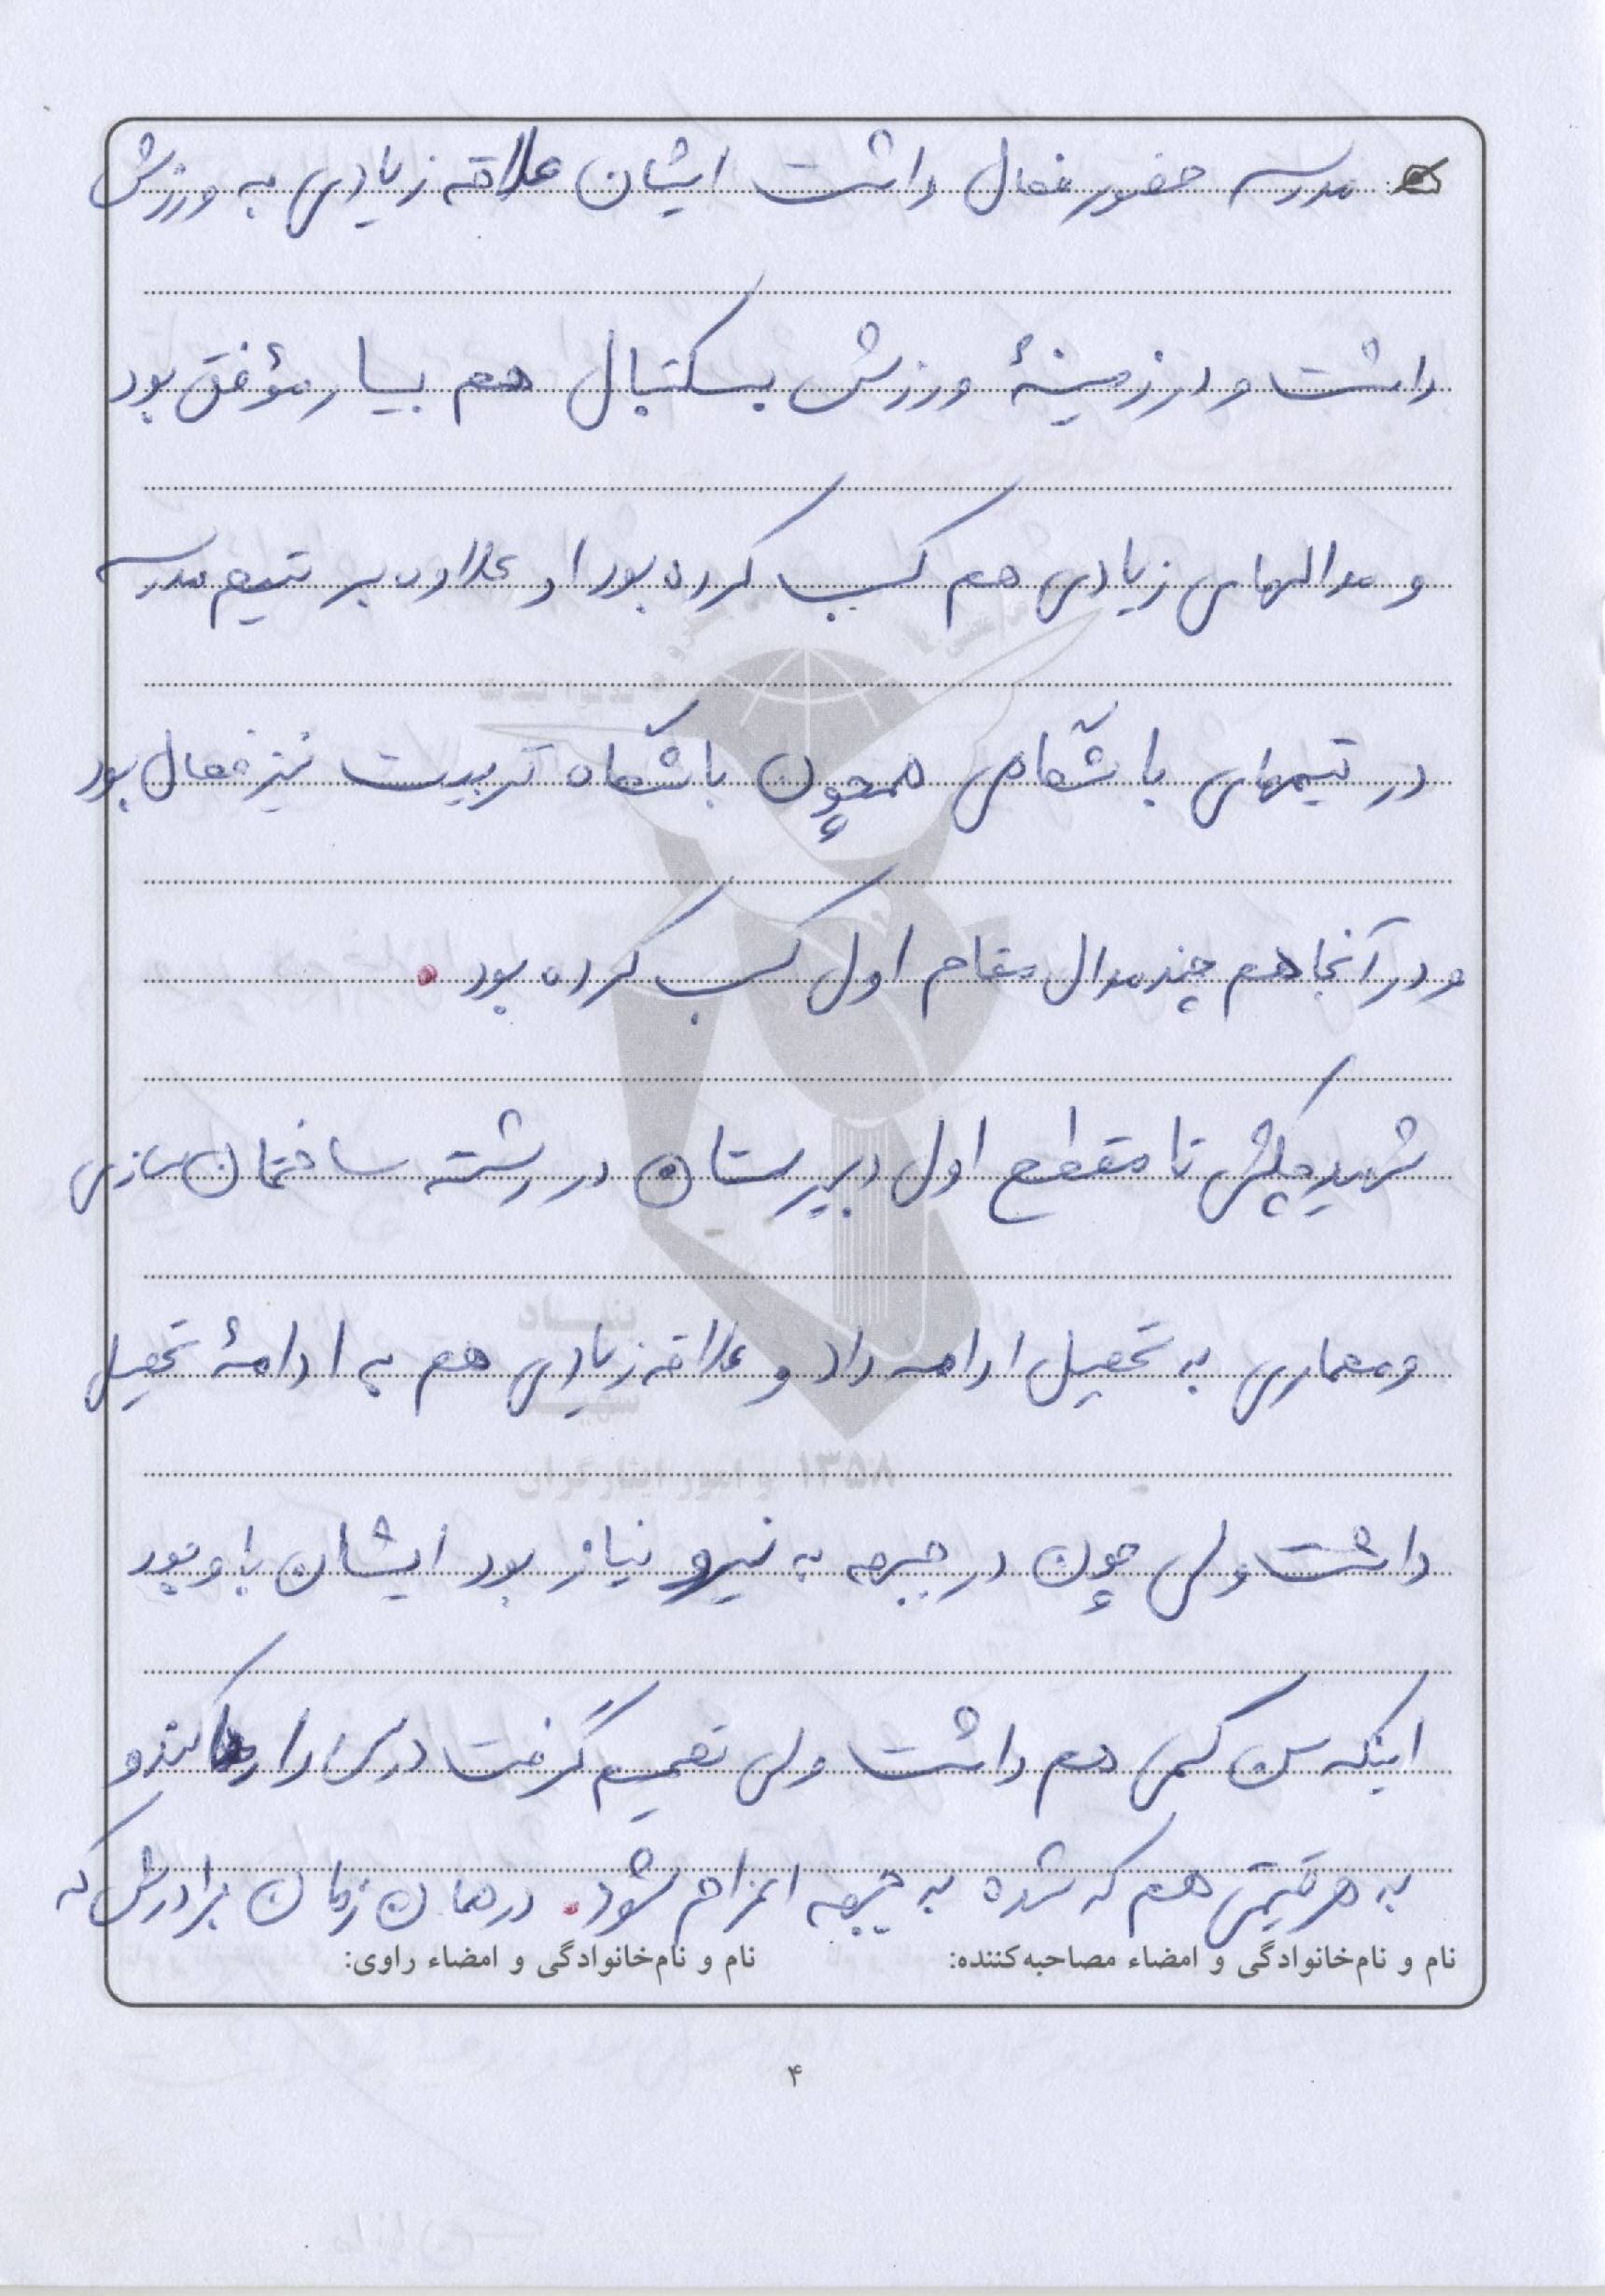 مدرسه حضور فعال داشت ایشان علاقه زیادی به ورزش
داشت و در زمینهٔ ورزش بسکتبال هم بسیار مؤفق بود
و مدالهای زیادی هم کسب کرده بود او علاوه بر تیم مدرسه
در تیمهای باشگاهی همچون باشگاه تربیت نیز فعال بود
و در آنجا هم چند مدال مقام اول کسب کرده بود.
شهید چکشی تا مقطع اول دبیرستان در رشته ساختمان سازی
و معماری به تحصیل ادامه داد و علاقه زیادی هم به ادامهٔ تحصیل
داشت ولی چون در جبهه به نیرو نیاز بود ایشان با وجود
اینکه سن کمی هم داشت ولی تصمیم گرفت درس را رها کند و
به هر قیمتی هم که شده به جبهه اعزام شود. در همان زمان برادرش که
نام و نام‌خانوادگی و امضاء مصاحبه‌کننده: نام و نام‌خانوادگی و امضاء راوی:
۴
بنیاد
شهید
۱۳۵۸ و امور ایثارگران